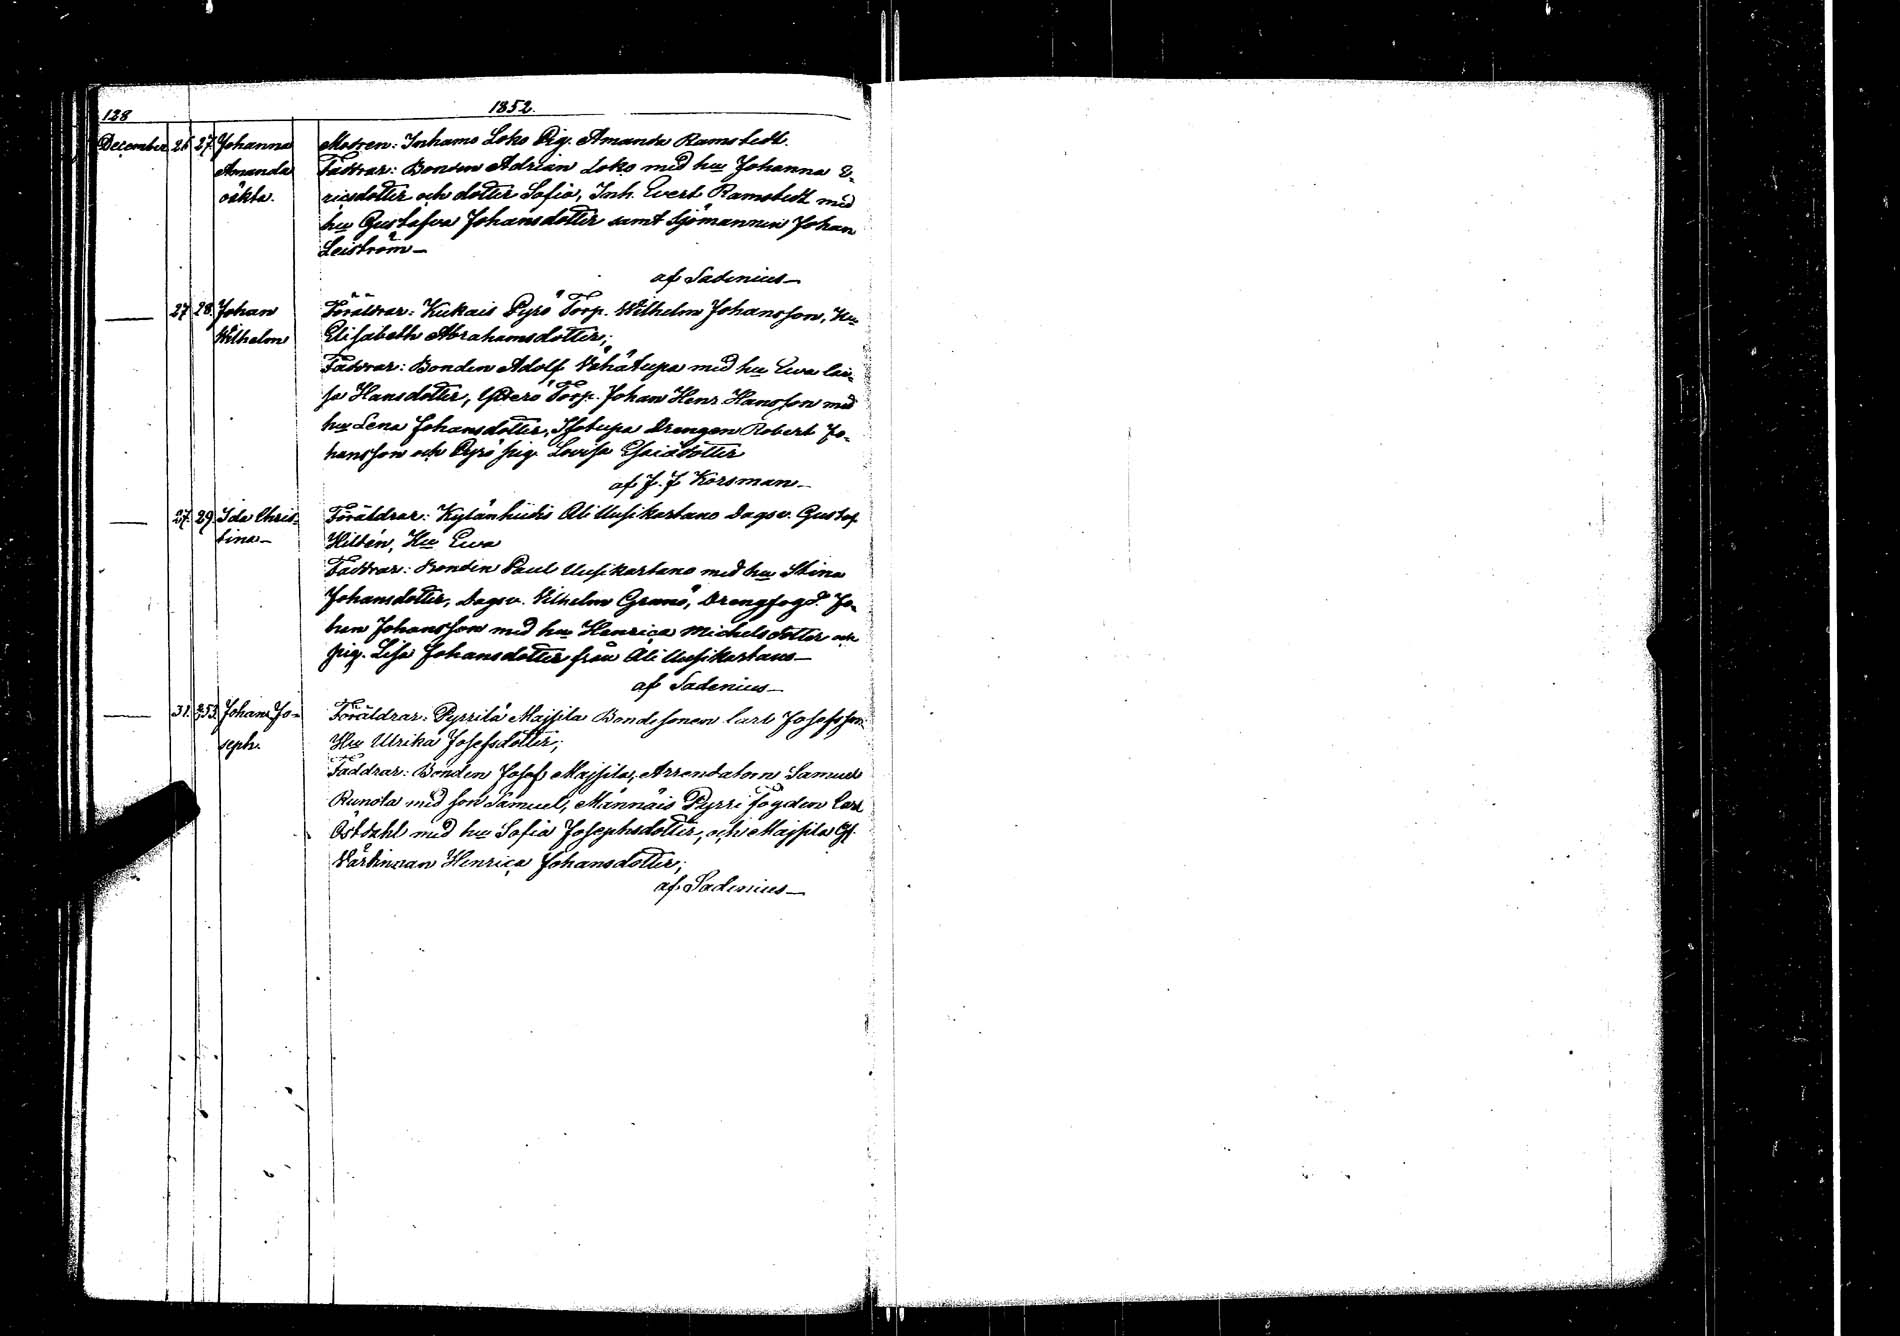 128 1852.
December 26 27. Johanna Modren: Inhamo Loko Pig. Amanda Ramstedt.
Amanda Faddrar: Bonden Adrian Loko med hu Johanna E-
oäkta. ricsdotter och dotter Sofia, Inh. Evert Ramstedt med
hu Gustafva Johansdotter samt Sjömannen Johan
Leiström—
af Sadenius—
— 27 28. Johan Föräldrar: Kukais Pyrö Torp. Wilhelm Johansson, Hu
Wilhelm Elisabeth Abrahamsdotter;
Faddrar: Bonden Adolf Vähätupa med hu Ewa Lov-
sa Hansdotter, Ytterö Torp. Johan Henr. Hansson med
hu Lena Johansdotter, Isotupa Drengen Robert Jo-
hansson och Pyrö pig. Lovisa Esaiædotter
af J. J. Korsman—
— 27. 29. Ida Chris- Föräldrar: Kylänhiidis Ali Uusikartano Dagsv. Gustaf
tina— Hilden, Hu Ewa
Faddrar: Bonden Paul Uusikartano med hu Stina
Johansdotter, Dagsv. Vilhelm Granö, Drengfogd. Jo-
han Johansson med hu Henrica Michelsdotter och
pig. Lisa Johansdotter från Ali Uusikartano—
af Sadenius—
— 31. Johan Jo- Föräldrar: Pyrrilä Majsila Bondesonen Carl Josefsson
seph. Hu Ulrika Josefsdotter;
Faddrar: Bonden Josef Majsila, Arrendatorn Samuel
Runola med son Samuel, Männäis Pyrri fogden Carl
Östdahl med hu Sofia Josephsdotter, och Majsila Gf.
Värdinnan Henrica Johansdotter;
af Sadenius—